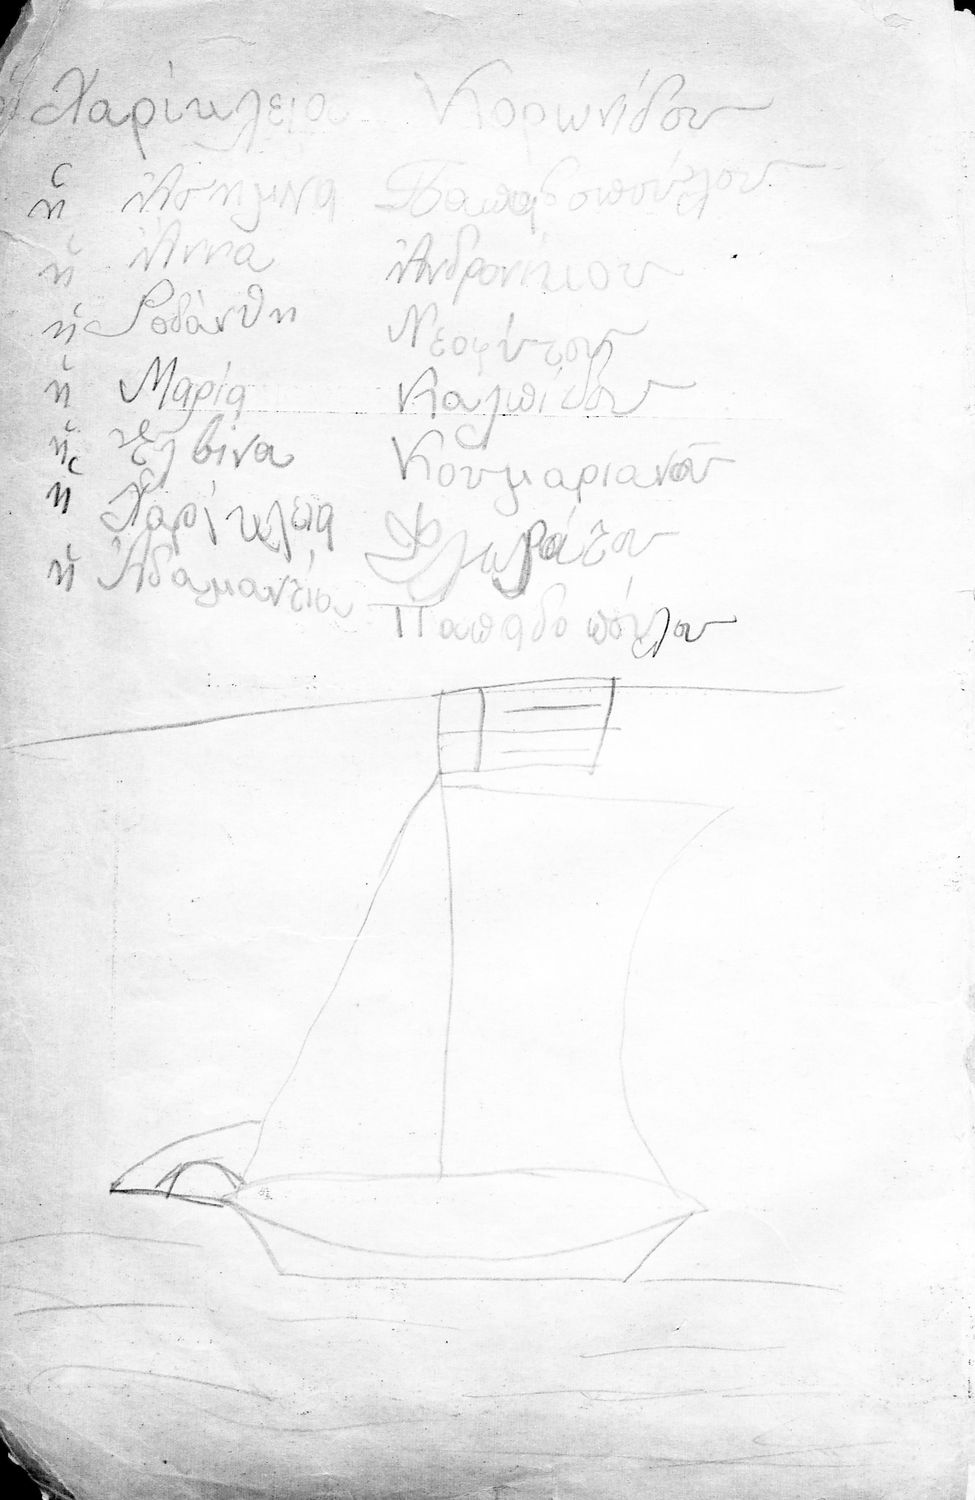 ἡ Χαρίκλεια Κορωνίδου
ἡ Ἀσημινα Παπαδοπούλου
ἡ Ἀννα Ἀνδρονίκου
ἡ Ροδάνθη Νεοφύτου
ἡ Μαρία Καλπίδου
ἡ Κουμαριανοῦ
ἡ Χαρίκλεια
ἡ Ἀδαμαντία Παπαδοπούλου